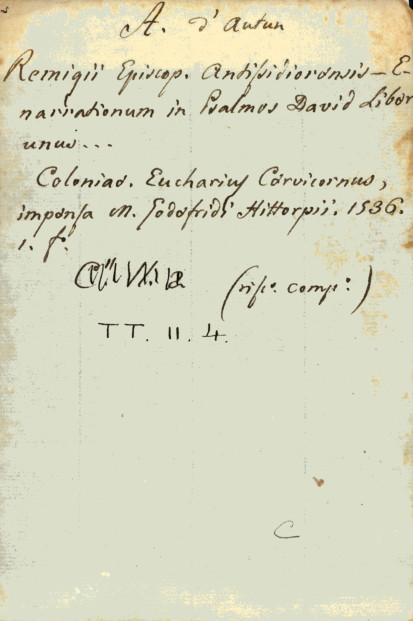 A. d'Autun
Remigii Episcop. Antissidiorensis – E-
narrationum in Psalmos David Liber
unus...
Coloniae. Eucharius Cervicornus,
impensa M. Godofridi Hittorpii. 1536.
1. fº.
(risº. compº.)
TT. II. 4.
C